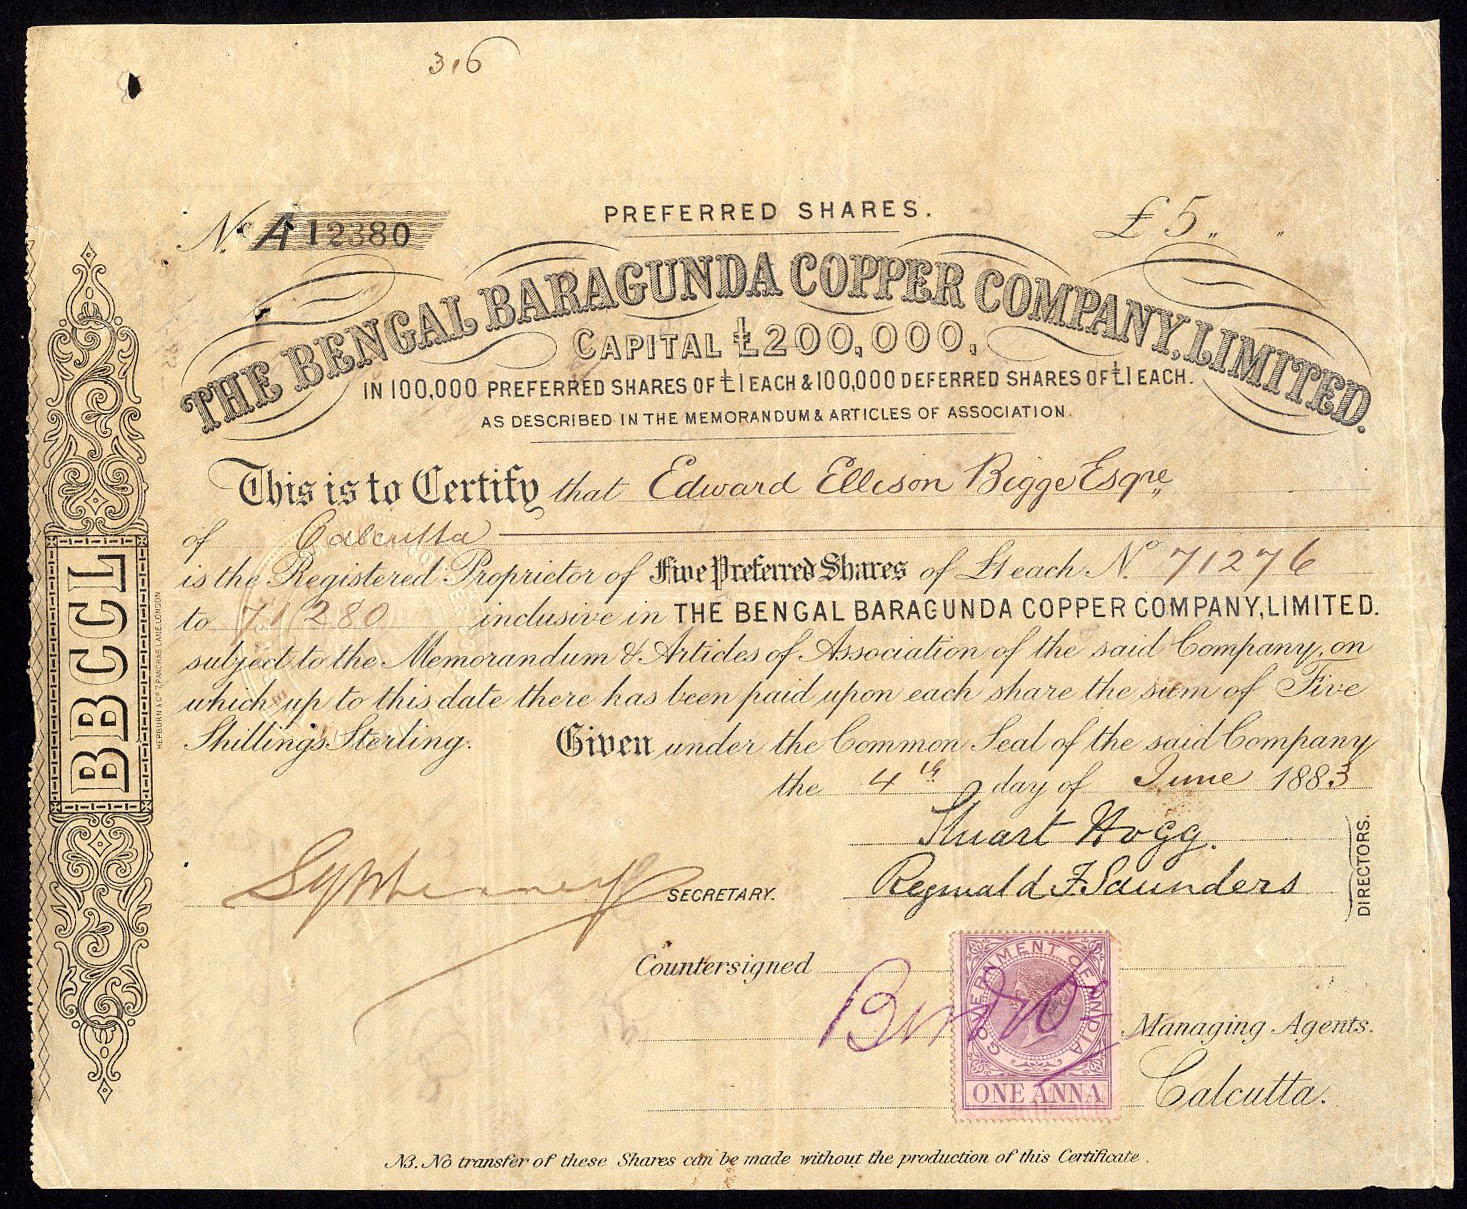 316
PREFERRED SHARES.
No. A12380
£5 „ „
THE BENGAL BARAGUNDA COPPER COMPANY, LIMITED.
CAPITAL £200,000,
IN 100,000 PREFERRED SHARES OF £1 EACH & 100,000 DEFERRED SHARES OF £1 EACH.
AS DESCRIBED IN THE MEMORANDUM & ARTICLES OF ASSOCIATION.
This is to Certify that Edward Ellison Bigge Esqre
of Calcutta
is the Registered Proprietor of Five Preferred Shares of £1 each No. 71276
to 71280 inclusive in THE BENGAL BARAGUNDA COPPER COMPANY, LIMITED.
subject to the Memorandum & Articles of Association of the said Company, on
which up to this date there has been paid upon each share the sum of Five
Shillings Sterling. Given under the Common Seal of the said Company
the 4th day of June 1883
Stuart Hogg.
Reginald F. Saunders
DIRECTORS.
SECRETARY.
Countersigned
GOVERNMENT OF INDIA
ONE ANNA
Managing Agents.
Calcutta.
NB. No transfer of these Shares can be made without the production of this Certificate.
BBCCL
HEPBURN & Co. 7, PANCRAS LANE, LONDON